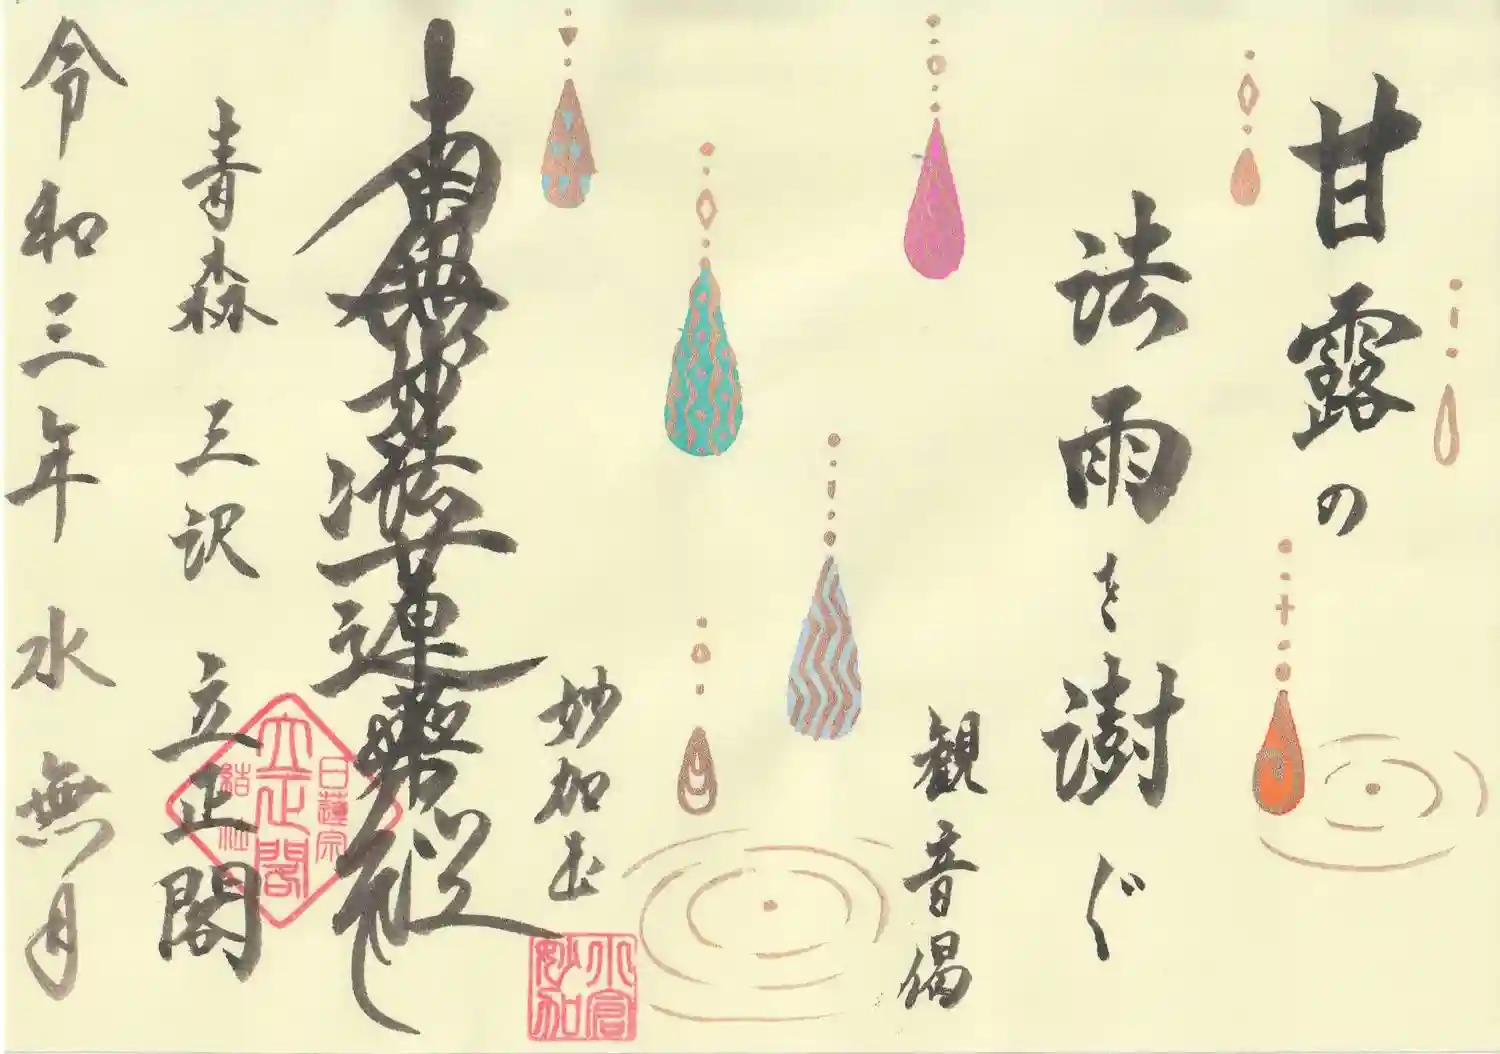 甘露の
法雨を澍ぐ
観音偈
妙加
小倉
妙加
南無妙法蓮華経
日蓮宗
立正閣
結社
青森 三沢 立正閣
令和三年 水無月